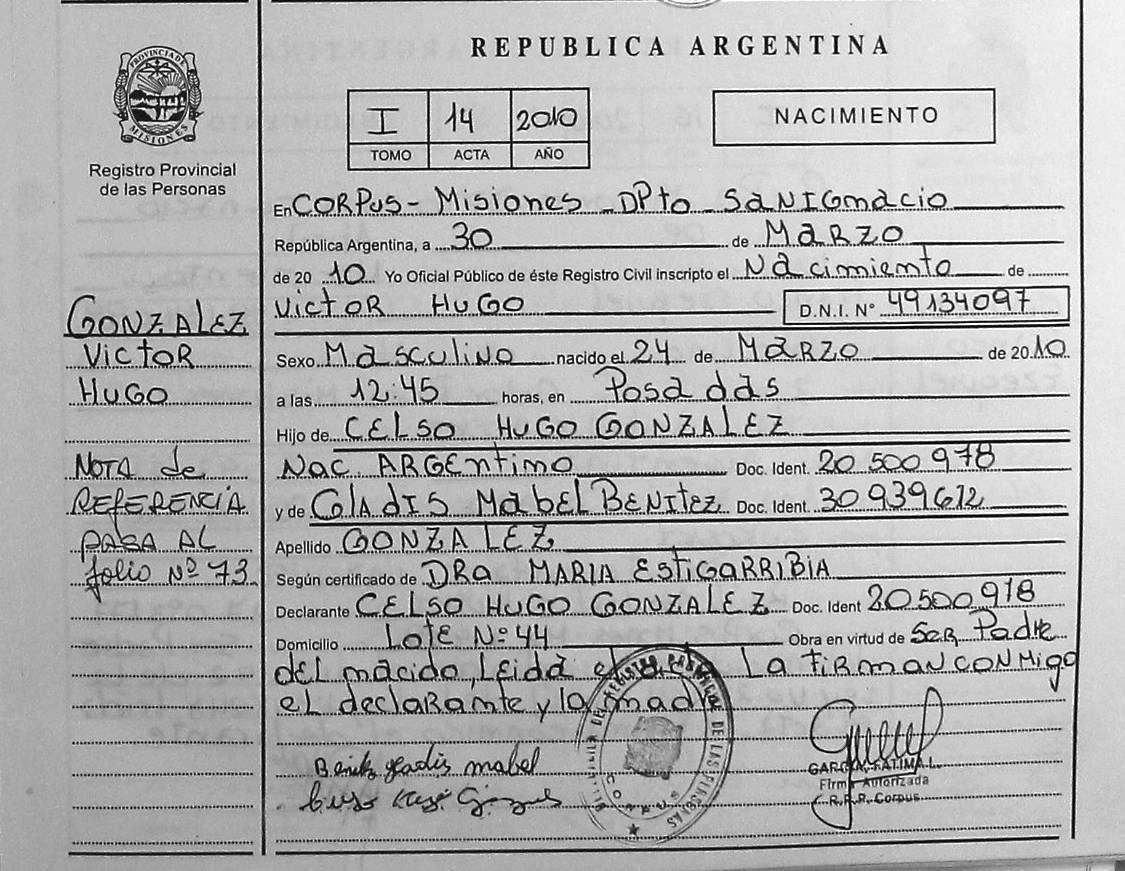 REPUBLICA ARGENTINA
PROVINCIA DE MISIONES
Registro Provincial
de las Personas
I 14 2010
TOMO ACTA AÑO
NACIMIENTO
En CORPUS - Misiones - DPto - SAN IGNacio
República Argentina, a 30 de MARZO
de 2010 Yo Oficial Público de éste Registro Civil inscripto el Nacimiento de
VictoR HUGO D.N.I. N° 49134097
GONZALEZ
VICTOR
HUGO
Sexo Masculino nacido el 24 de MARZO de 2010
a las 12:45 horas, en Posadas
Hijo de CELSO HUGO GONZALEZ
Nac. ARGEntino Doc. Ident. 20 500 978
y de GlAdiS MabEL BENITez Doc. Ident. 30 939 612
Apellido GONZALEZ
Según certificado de DRa MARIA EstiGARRIBIA
Declarante CELSO HUGO GONZALEZ Doc. Ident 20500978
Domicilio LOTE Nº 44 Obra en virtud de SER Padre
NOTA de
REFERENCIA
PASA AL
folio Nº 73
DEL nacido, LEIDA el La FIRMAN CONMigo
eL declaRante y la madre
Benitez gladis mabel
GARCIA FATIMA L.
Firma Autorizada
C.R.P.P. Corpus
DE LAS PERSONAS
CORPUS